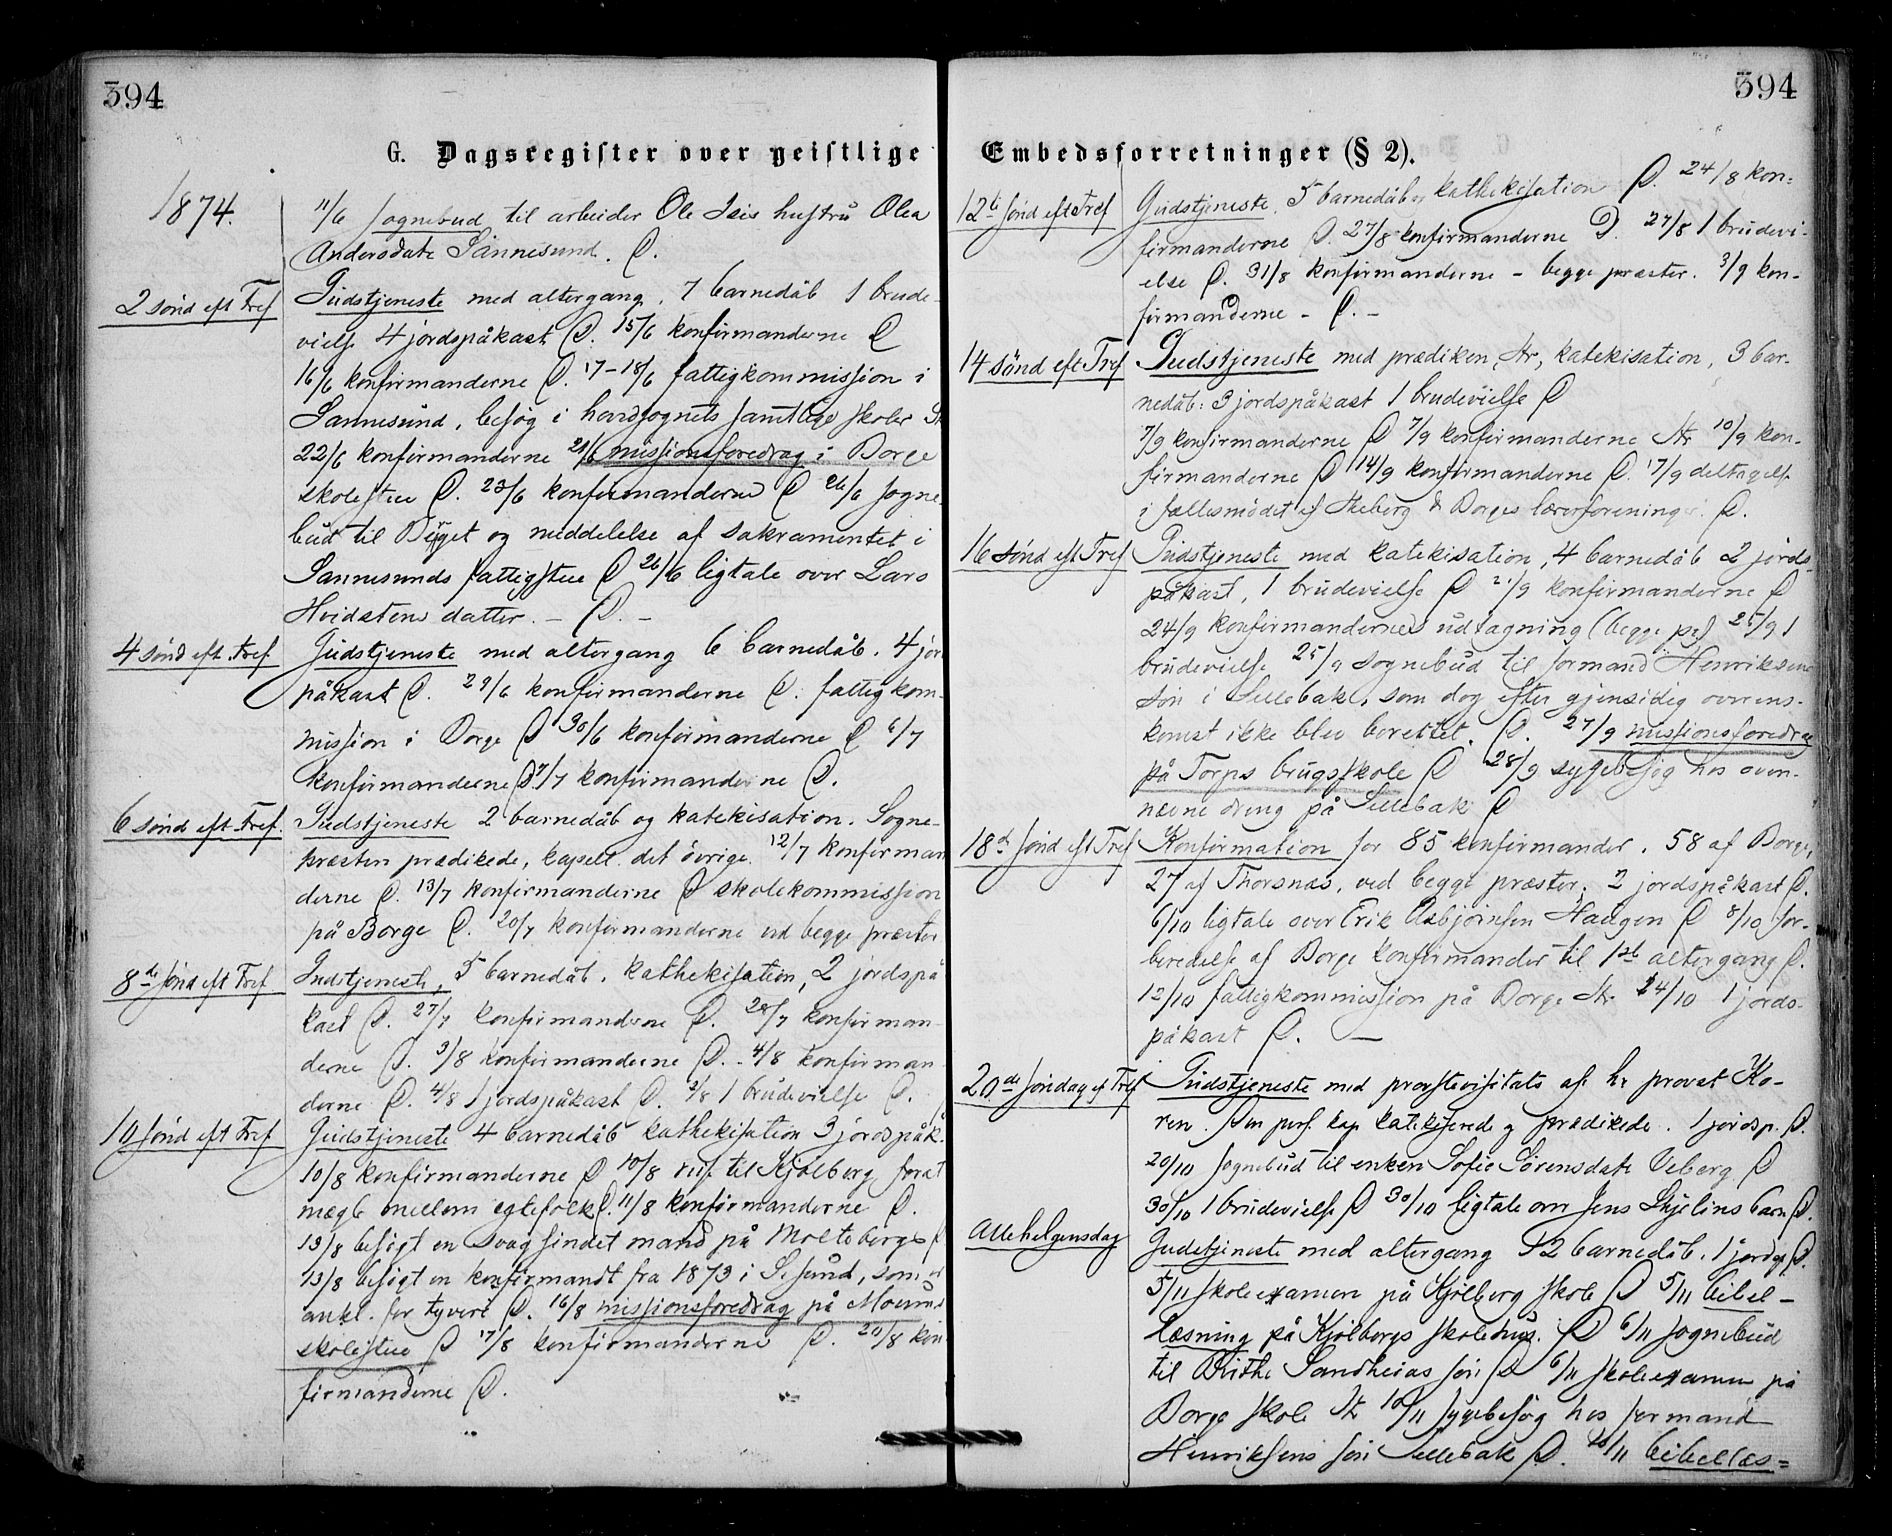 394
394
G. Dagsregister over geistlige Embedsforretninger (§ 2).
1874.
11/6 sognebud til arbeider Ole Isis hustru Olea
Andersdatr Sannesund. P.
2 sönd eft Tref
Gudstjeneste med altergang. 7 barnedåb 1 brude-
vielse 4 jordspåkast P. 15/6 konfirmanderne P
16/6 konfirmanderne P. 17-18/6 fattigkommission i
Sannesund, besög i hovedsognets samtlige skoler
22/6 konfirmanderne missionsforedrag i Borge
skolestue P. 23/6 konfirmanderne P 26/6 sogne-
bud til og meddelelse af sakramentet i
Sannesunds fattigstue P 26/6 ligtale over Lars
Hvidstens datter. – P. –
4 sönd eft. Tref.
Gudstjeneste med altergang 6 barnedåb. 4 jor
påkast P. 29/6 konfirmanderne P. fattigkom-
mission i Borge P 30/6 konfirmanderne P 6/7
konfirmanderne P 7/7 konfirmanderne P.
6 sönd eft Tref.
Gudstjeneste 2 barnedåb og katekisation. Sogne-
præsten prædikede, kapell. det övrige. 12/7 konfirman
derne P. 13/7 konfirmanderne P skolekommission
på Borge P. 20/7 konfirmanderne ved begge præster
8de sönd eft Tref
Gudstjeneste, 5 barnedåb. kathekisation, 2 jordspå
kast P. 27/7 konfirmanderne P. 28/7 konfirman-
derne P. 3/8 konfirmanderne P. - 4/8 konfirman
derne P. 4/8 1 jordspåkast P. 2/8 1 brudevielse P.
10 sönd eft Tref
Gudstjeneste 4 barnedåb kathekisation 3 jordspåk.
10/8 konfirmanderne P 10/8 til Kjölberg forat
mægle mellem egtefolk P. 11/8 konfirmanderne P.
13/8 besögt en svagsindet mand på Molteberg P
13/8 besögt en konfirmandt fra 1873 i Sesund, som er
ankl. for tyveri P. 16/8 missionsforedrag på Moum
skolestue P 17/8 konfirmanderne P. 20/8 kon
firmanderne P.
12te sönd eft Tref
Gudstjeneste. 5 barnedåb og kathekisation P. 24/8 kon-
firmanderne P. 27/8 konfirmanderne P. 27/8 1 brudevi-
else P. 31/8 konfirmanderne – begge præster. 3/9 kon-
firmanderne – P. –
14 sönd eft Tref
Gudstjeneste med prædiken, Str, katekisation, 3 bar-
nedåb: 3 jordspåkast 1 brudevielse P
7/9 konfirmanderne P 7/9 konfirmanderne Str 10/9 kon-
firmanderne P 14/9 konfirmanderne P. 17/9 deltagelse
i fællesmödet af Skeberg & Borges lærerforening. P.
16 sönd eft Tref
Gudstjeneste med katekisation, 4 barnedåb 2 jords-
påkast, 1 brudevielse P 21/9 konfirmanderne P
24/9 konfirmandernes udtagning (begge pr) 25/9 1
brudevielse 25/9 sognebud til formand Henriksens
sön i Sellebak, som dog efter gjensidig overens-
komst ikke blev berettet. P. 27/9 missionsforedrag
på Torps brugsskole P 28/9 sygebesög hos oven-
nævne dreng på Sellebak P
18d sönd eft Tref
Konfirmation for 85 konfirmander. 58 af Borge,
27 af Thorsnæs, ved begge præster. 2 jordspåkast P.
6/10 ligtale over Erik Asbjörnsen Haugen P 8/10 for-
beredelse af Borge konfirmander til 1ste altergang P.
12/10 fattigkommission på Borge Str. 24/10 1 jords-
påkast P. —
20de söndag ef Tref
Gudstjeneste med provstevisitats af hr provst Ko-
ren. Den pers. kap katekiserede og prædikede. 1 jordsp. P.
20/10 sognebud til enken Sofie Sörensdatr Veberg P
30/10 1 brudevielse P 30/10 ligtale over Jens Skjelins barn P.
Allehelgensdag
Gudstjeneste med altergang 2 barnedåb. 1 jordsp P.
5/11 skoleexamen på Kjölberg skole P 5/11 bibel-
læsning på Kjölbergs skolehus. P 6/11 sognebud
til Brithe Sandheias sön P 6/11 skoleexamen på
Borge skole Str 10/11 sygebesög hos formand
Henriksens sön Sellebak P. bibellæs=